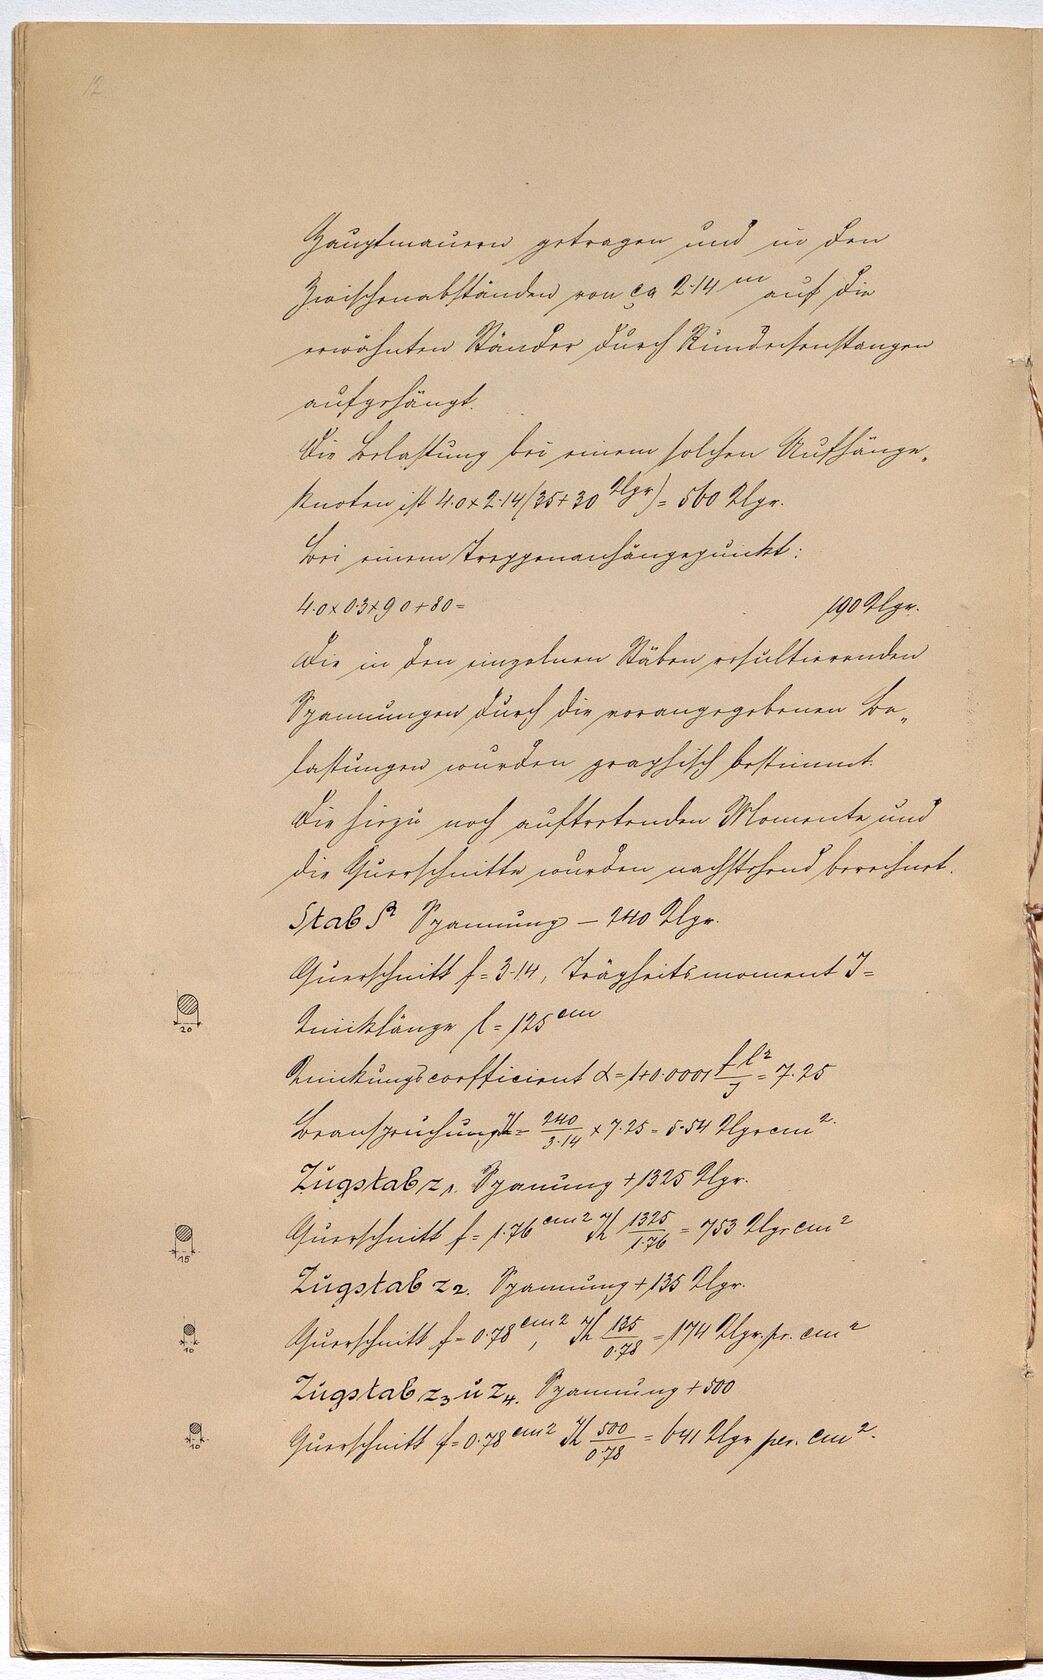 12
Hauptmauern getragen und in den
Zwischenabständen von ca 2·14 m auf die
erwähnten Ständer durch Rundeisenstangen
aufgehängt.
Die Belastung bei einem solchen Aufhänge„
knoten ist 4.0 x 2·14 (35+30 Klgr) = 560 Klgr.
Bei einem Treppenanhängepunkt:
4.0 x 0.3 x 90 + 80 = 190 Klgr.
Die in den einzelnen Stäben resultierenden
Spannungen durch die vorangegebenen Be„
lastungen wurden graphisch bestimmt.
Die hiezu noch auftretenden Momente und
die Querschnitte wurden nachstehend berechnet.
Stab Spannung – 240 Klgr.
Querschnitt f = 3·14, Trägheitsmoment J =
20
Knicklänge l = 125 cm
Knickungscoefficient α = 1+0.0001 f l²/J = 7·25
Beanspruchung K = 240/3·14 x 7.25 = 5·54 Klgr cm².
Zugstab z1. Spanung + 1325 Klgr.
Querschnitt f = 1.76 cm2 K 1325/1.76 = 753 Klgr cm2
15
Zugstab z2. Spannung + 135 Klgr.
Querschnitt f = 0.78 cm2, K 135/0.78 = 174 Klgr. pr. cm2
10
Zugstab z3 u z4. Spannung + 500
Querschnitt f = 0.78 cm2 K 500/0.78 = 641 Klgr per. cm2.
10